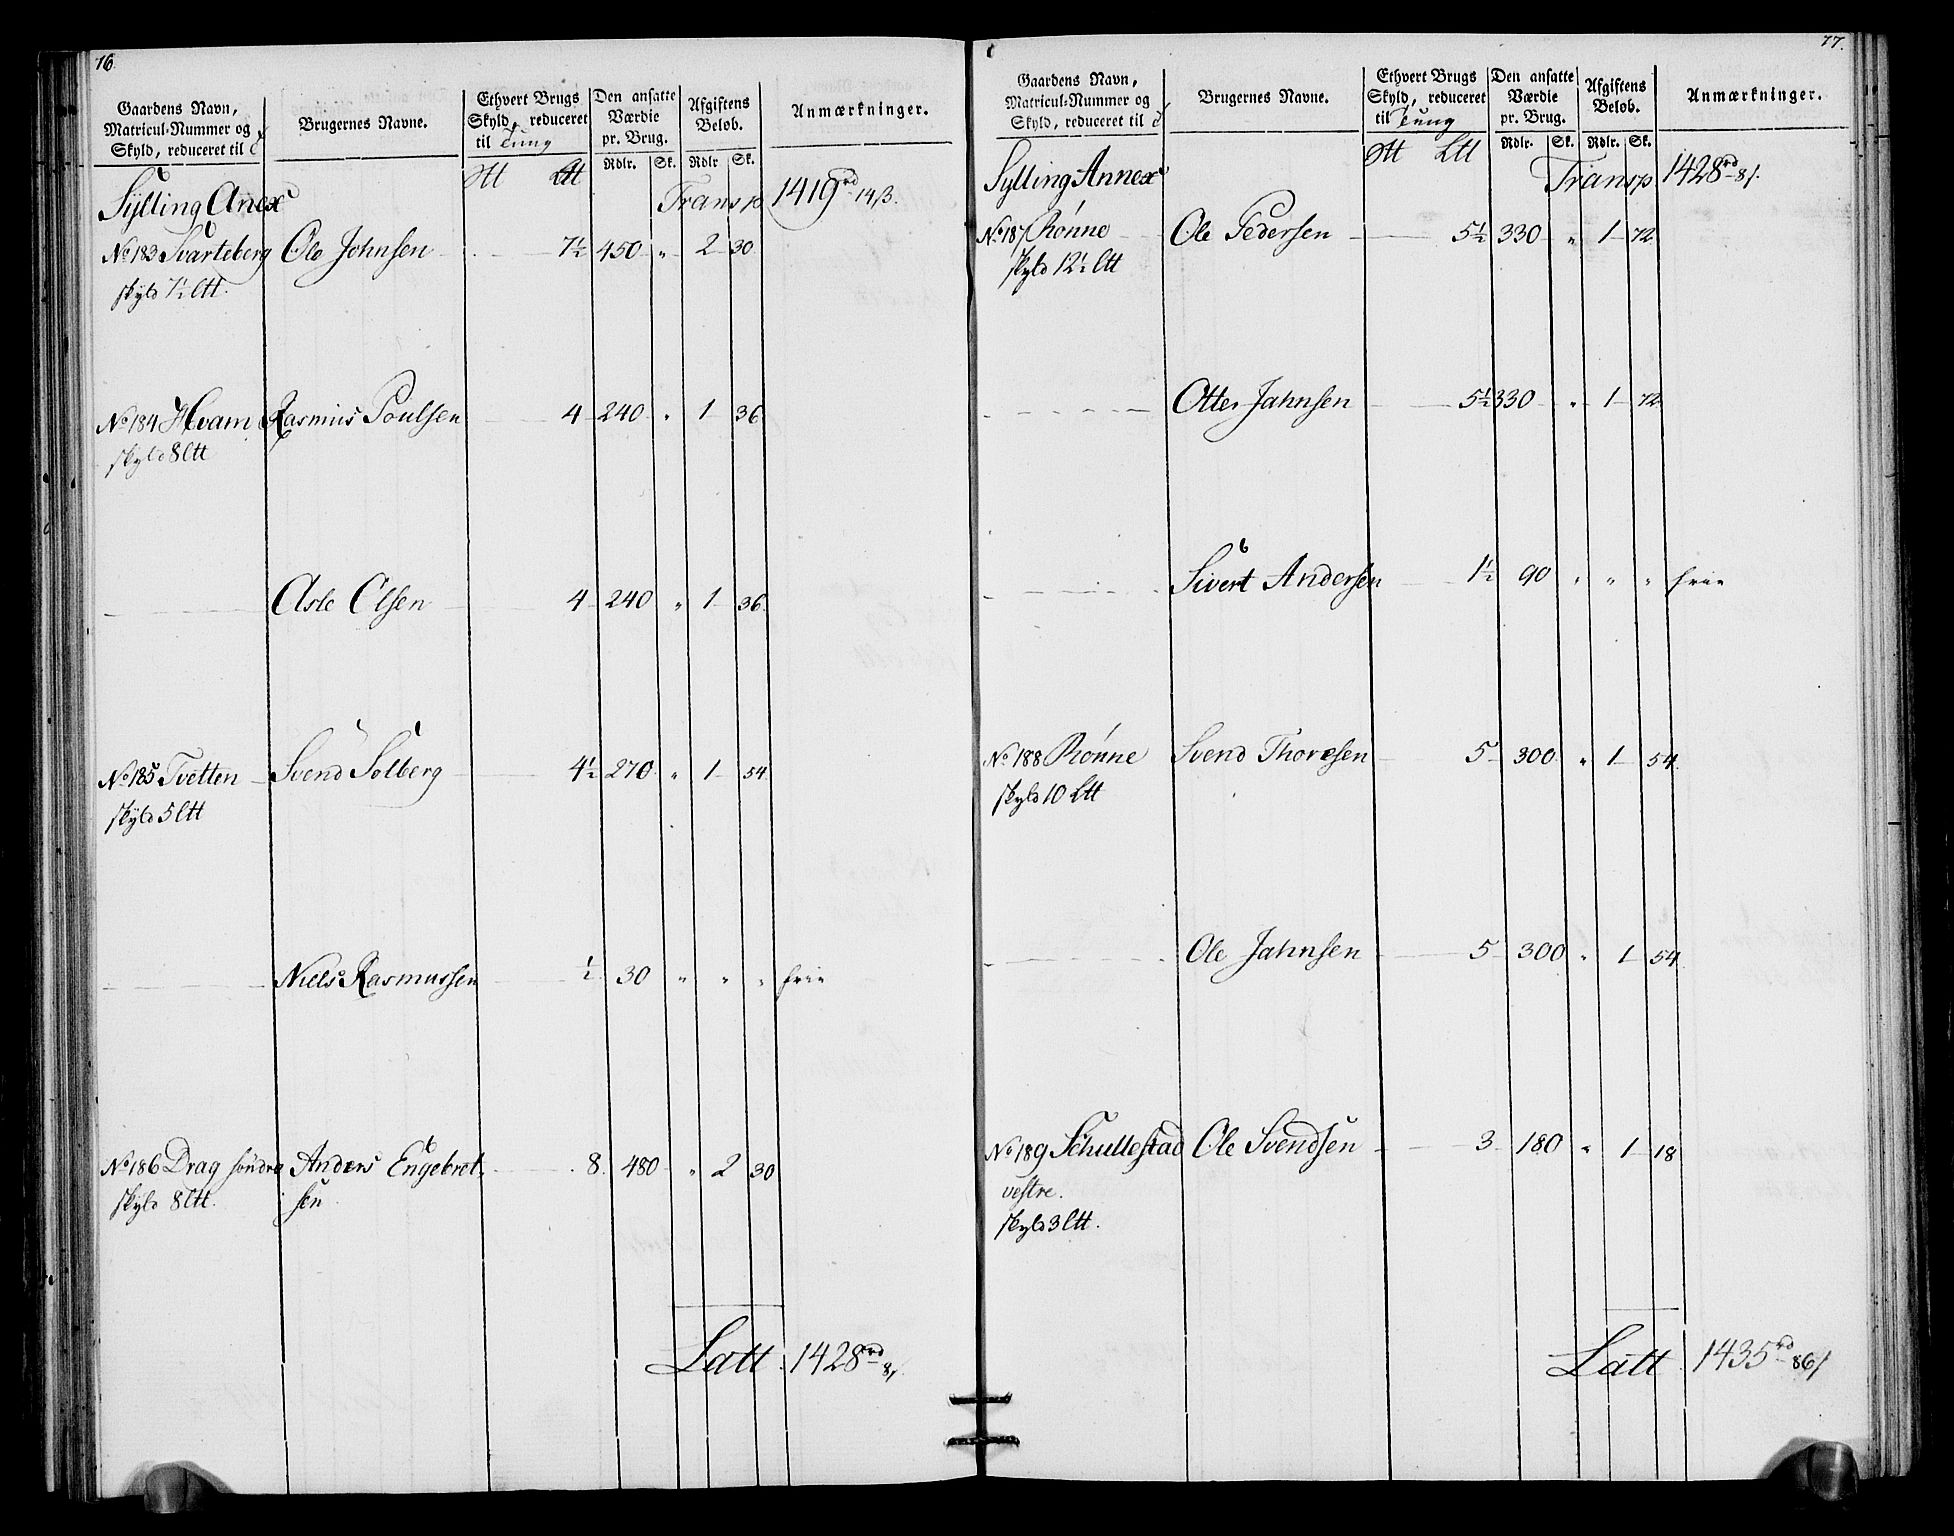 76.
Gaardens Navn, Matricul-Nummer og Skyld, reduceret til
Brugernes Navne.
Ethvert Brugs Skyld, reduceret til Tung
Den ansatte Værdie pr. Brug.
Afgiftens Beløb.
Anmærkninger.
Rdlr. Sk. Rdlr Sk.
Sylling Anex Transp 1419rd 14β.
No. 183 Svarteberg Ole Johnsen 7½ 450 " 2 30
skyld 7½ Ltt.
No. 184 Hvam Rasmus Poulsen 4 240 " 1 36
skyld 8 Ltt
Asle Olsen 4 240 " 1 36
No. 185 Tvetten Svend Solberg 4½ 270 " 1 54
skyld 5 Ltt
Niels Rasmussen ½ 30 " " " frie
No. 186 Drag søndre Anders Engebret- 8 480 " 2 30
skyld 8 Ltt. sen
Latt 1428rd 8β
77.
Gaardens Navn, Matricul-Nummer og Skyld, reduceret til
Brugernes Navne.
Ethvert Brugs Skyld, reduceret til Tung
Den ansatte Værdie pr. Brug.
Afgiftens Beløb.
Anmærkninger.
Rdlr. Sk. Rdlr. Sk.
Sylling Annex Transp 1428rd 8β.
No. 187 Rønne Ole Pedersen 5½ 330 " 1 72
skyld 12½ Ltt
Otter Jahnsen 5½ 330 " 1 72
Sivert Andersen 1½ 90 " " " frie
No. 188 Rønne Svend Thoresen 5 300 " 1 54
skyld 10 Ltt
Ole Jahnsen 5 300 " 1 54
No. 189 Schullestad Ole Svendsen 3 180 " 1 18
vestre.
skyld 3 Ltt.
Latt 1435rd 86β